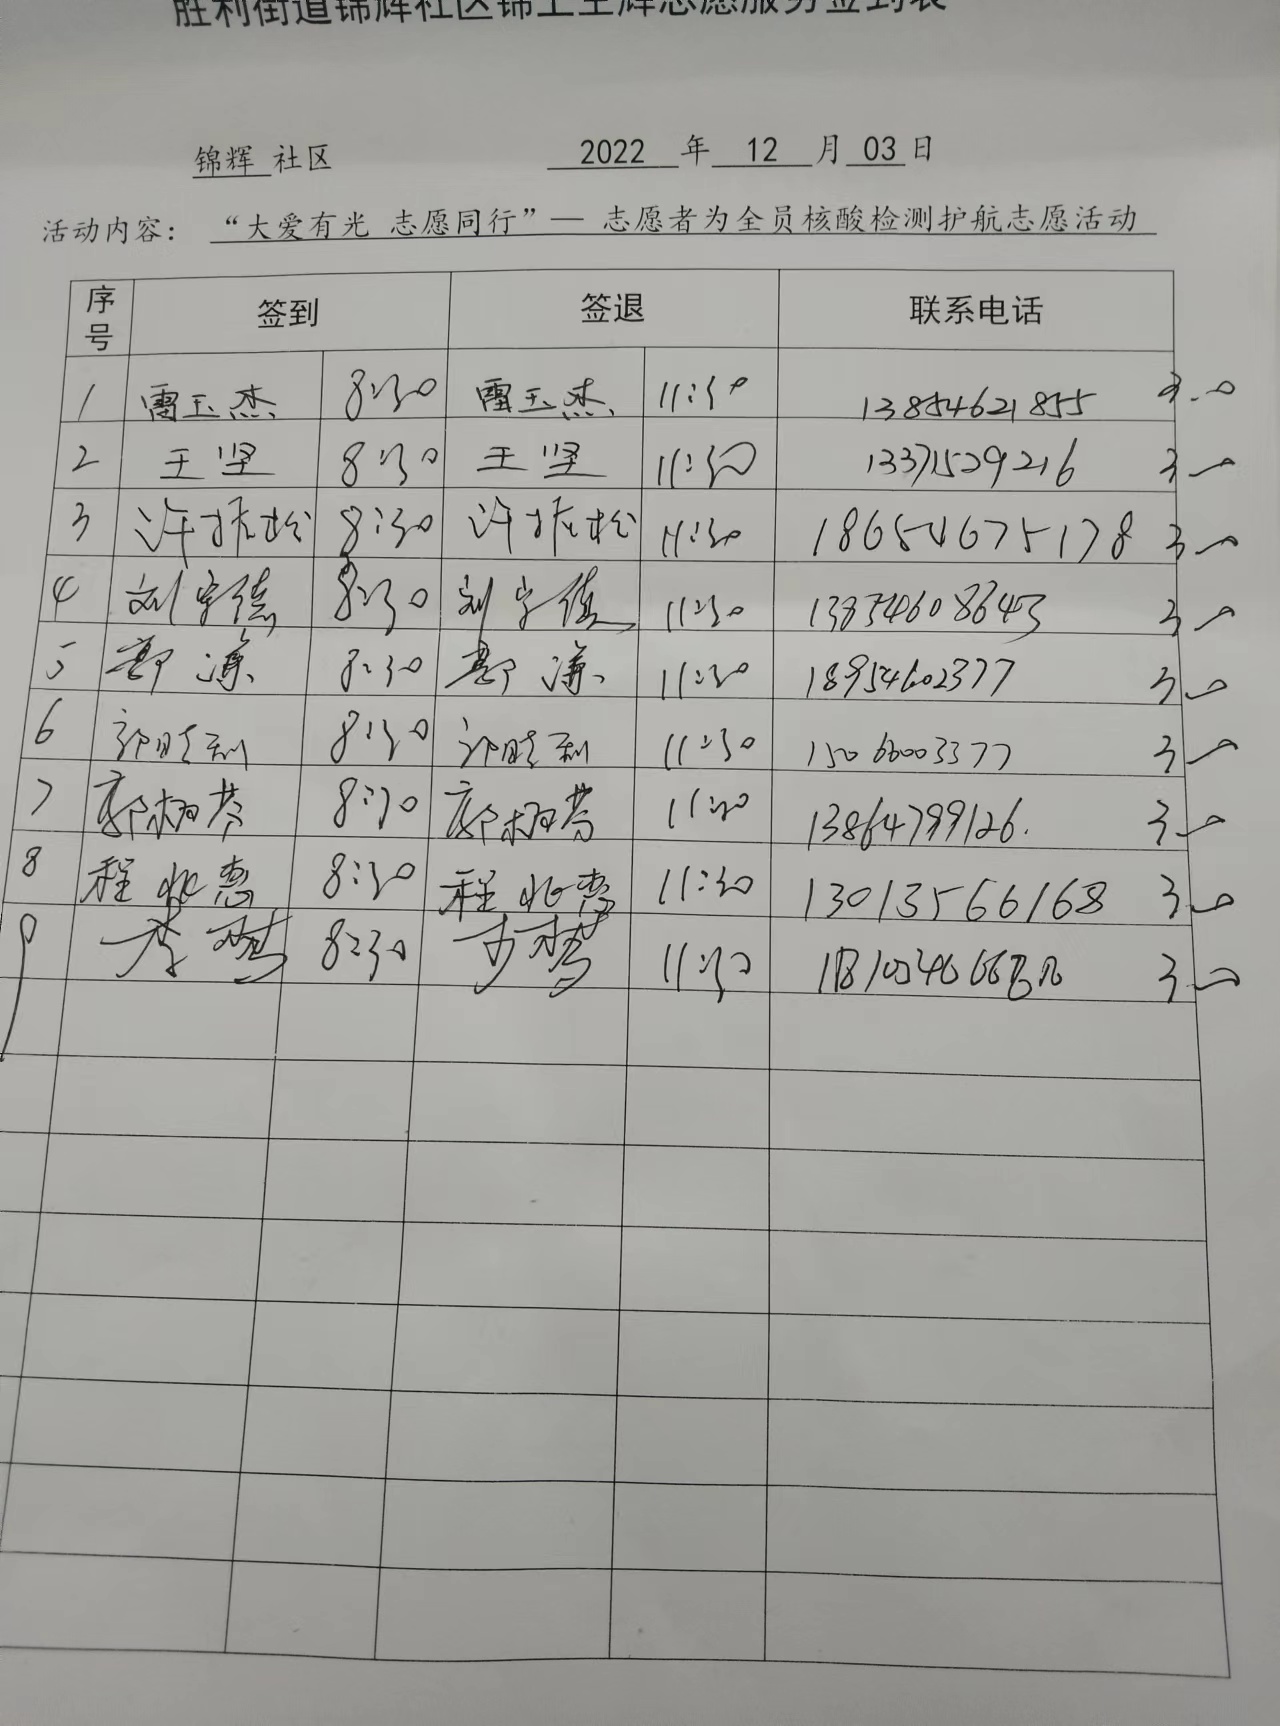 胜利街道锦辉社区锦上生辉志愿服务签到表
锦辉 社区 2022 年 12 月 03 日
活动内容： “大爱有光 志愿同行”— 志愿者为全员核酸检测护航志愿活动
序号 签到 签退 联系电话
1 雷玉杰 8:30 雷玉杰 11:30 13854621855 3.0
2 王坚 8:30 王坚 11:30 13371529216 3.0
3 许振松 8:30 许振松 11:30 18654675178 3.0
4 刘宇德 8:30 刘宇德 11:30 13854608643 3.0
5 8:30 11:30 18954602377 3.0
6 8:30 11:30 15066003377 3.0
7 8:30 11:30 13864799126. 3.0
8 程兆惠 8:30 程兆惠 11:30 13013566168 3.0
9 李梦 8:30 李梦 11:30 3.0